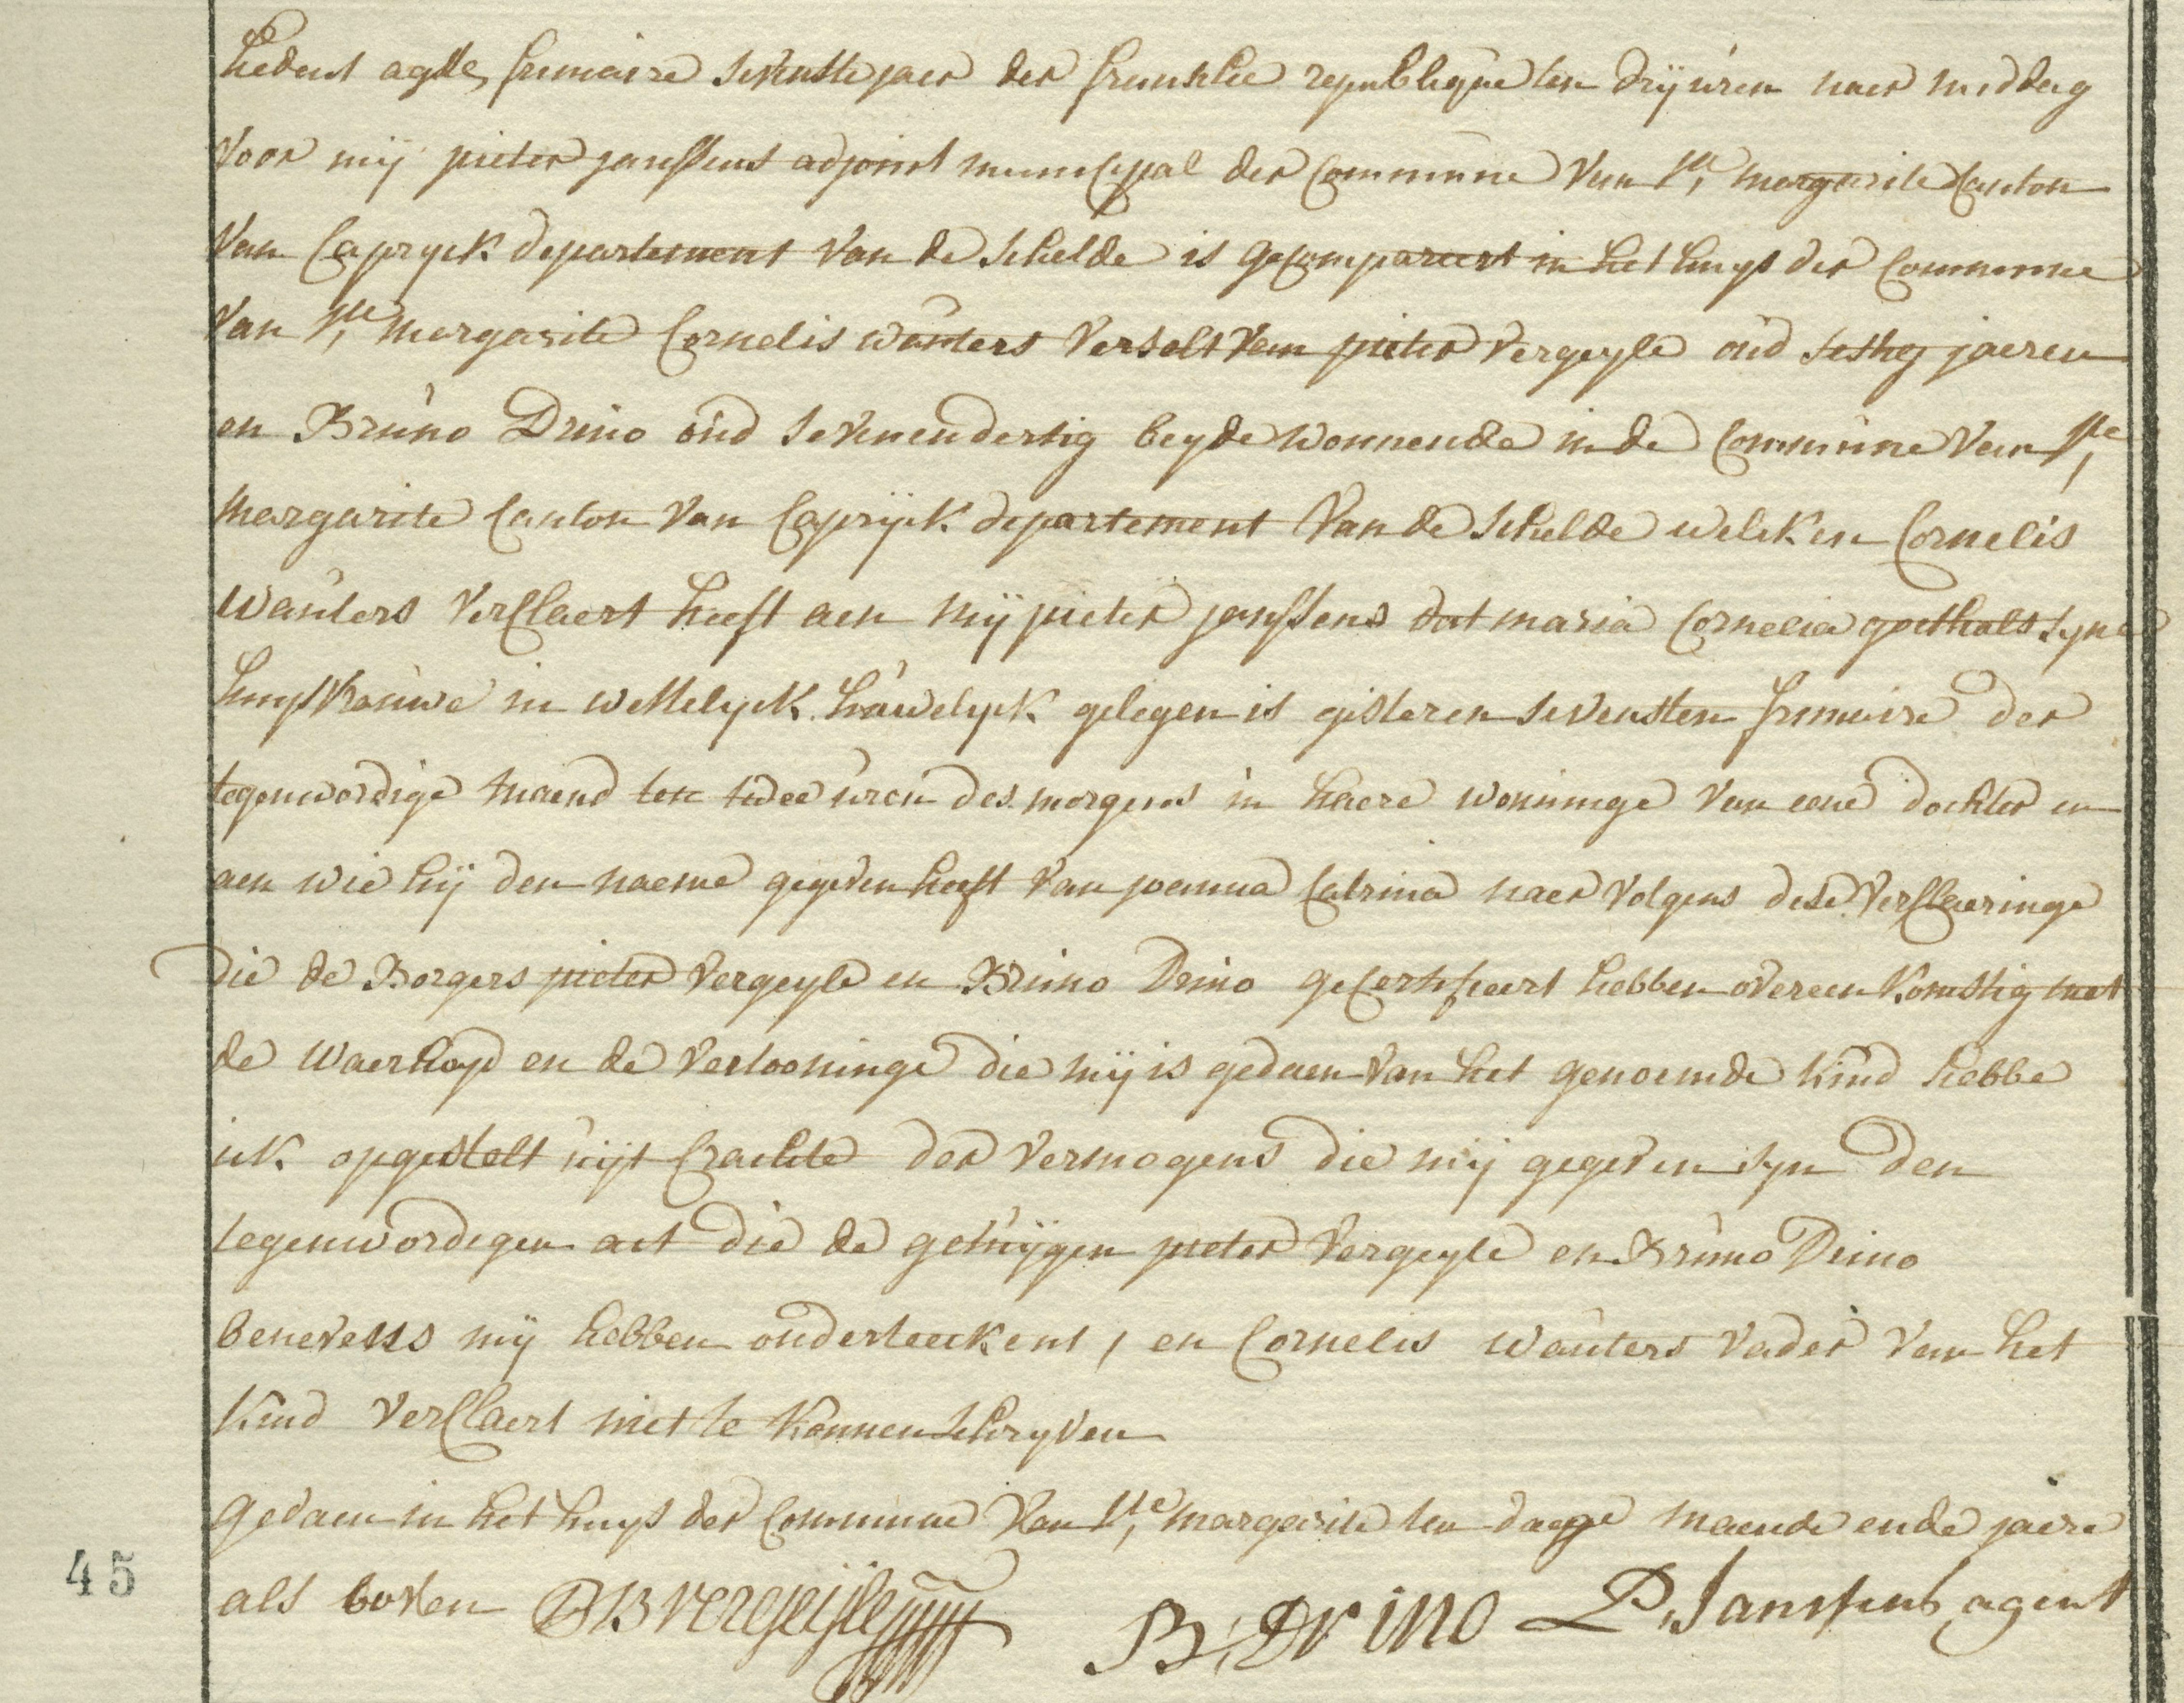 hedent agtte frimaire sevenste jaer der fransche republique ten drij uren naer middag
voor mij pieter janssens adjoint municipal der commune van ste, margarite canton
van capryck departement van de schelde is gecompareert in het huys der commune
van ste, margarite Cornelis wauters verselt van pieter vergeyle oud sestig jaeren
en Bruno Drino oud sevenendertig beyde wonnende in de commune van ste,
margarite canton van caprijck departement van de schelde welcken Cornelis
wauters verclaert heeft aen mij pieter janssens dat maria Cornelia goethals syne
huysvrouwe in wettelyck hauwelyck gelegen is gisteren sevensten frimaire der
tegenwordige maend ten twee uren des morgens in haere wooninge van eene dochter en
aen wie hij den naeme gegeven heeft van joanna Catrina naer volgens dese verclaeringe
die de Borgers pieter vergeyle en Bruno Drino gecertifieert hebben overeenkomstig met
de waerheyd en de vertooninge die mij is gedaen van het genoemde kind hebbe
ick opgestelt uijt crachte der vermogens die mij gegeven syn den
tegenwordigen act die de getuijgen pieter vergeyle en Bruno Drino
benevens mij hebben onderteeckent, en Cornelis wauters vader van het
kind verclaert niet te konnen schryven
gedaen in het huys der commune van Ste, margarite ten daege maende ende jaere
als boven PB vergeijle B, Drino P, Janssens agent
45